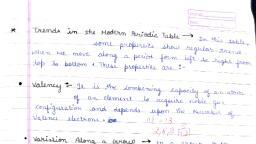 * Trends in the Modern Periodic Table → In this table,
some properties show regular trend
when we move along a period from left to right from
top to bottom. These properties are :-
• Valency :- It is the combining capacity of an atom
of an element to acquire noble gas
configuration and depends upon the number of
valence electrons.
2,8,3
• Variation Along a period → In a